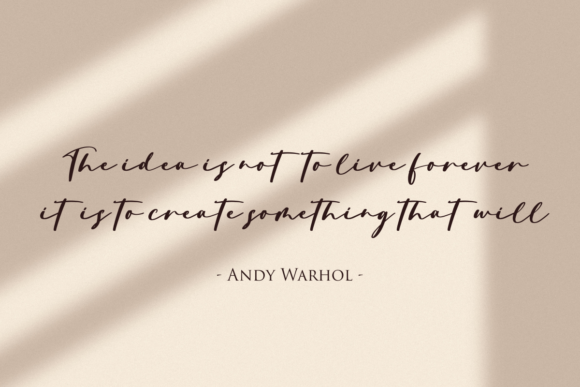 The idea is not to live forever
it is to create something that will
- ANDY WARHOL -